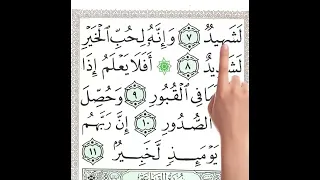 لَشَهِيدٌ ٧ وَإِنَّهُۥ لِحُبِّ ٱلْخَيْرِ
لَشَدِيدٌ ٨ أَفَلَا يَعْلَمُ إِذَا
مَا فِي ٱلْقُبُورِ ٩ وَحُصِّلَ
ٱلصُّدُورِ ١٠ إِنَّ رَبَّهُم
يَوْمَئِذٍ لَّخَبِيرٌ ١١